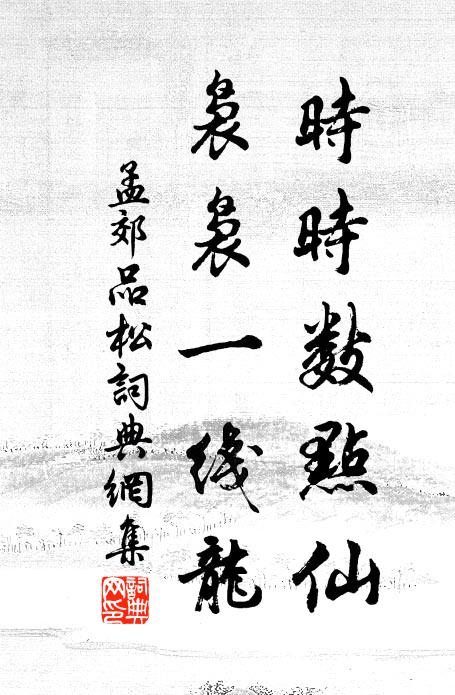 時時數點仙
裊裊一綫龍
孟郊品松詞典網集
詞典
网印